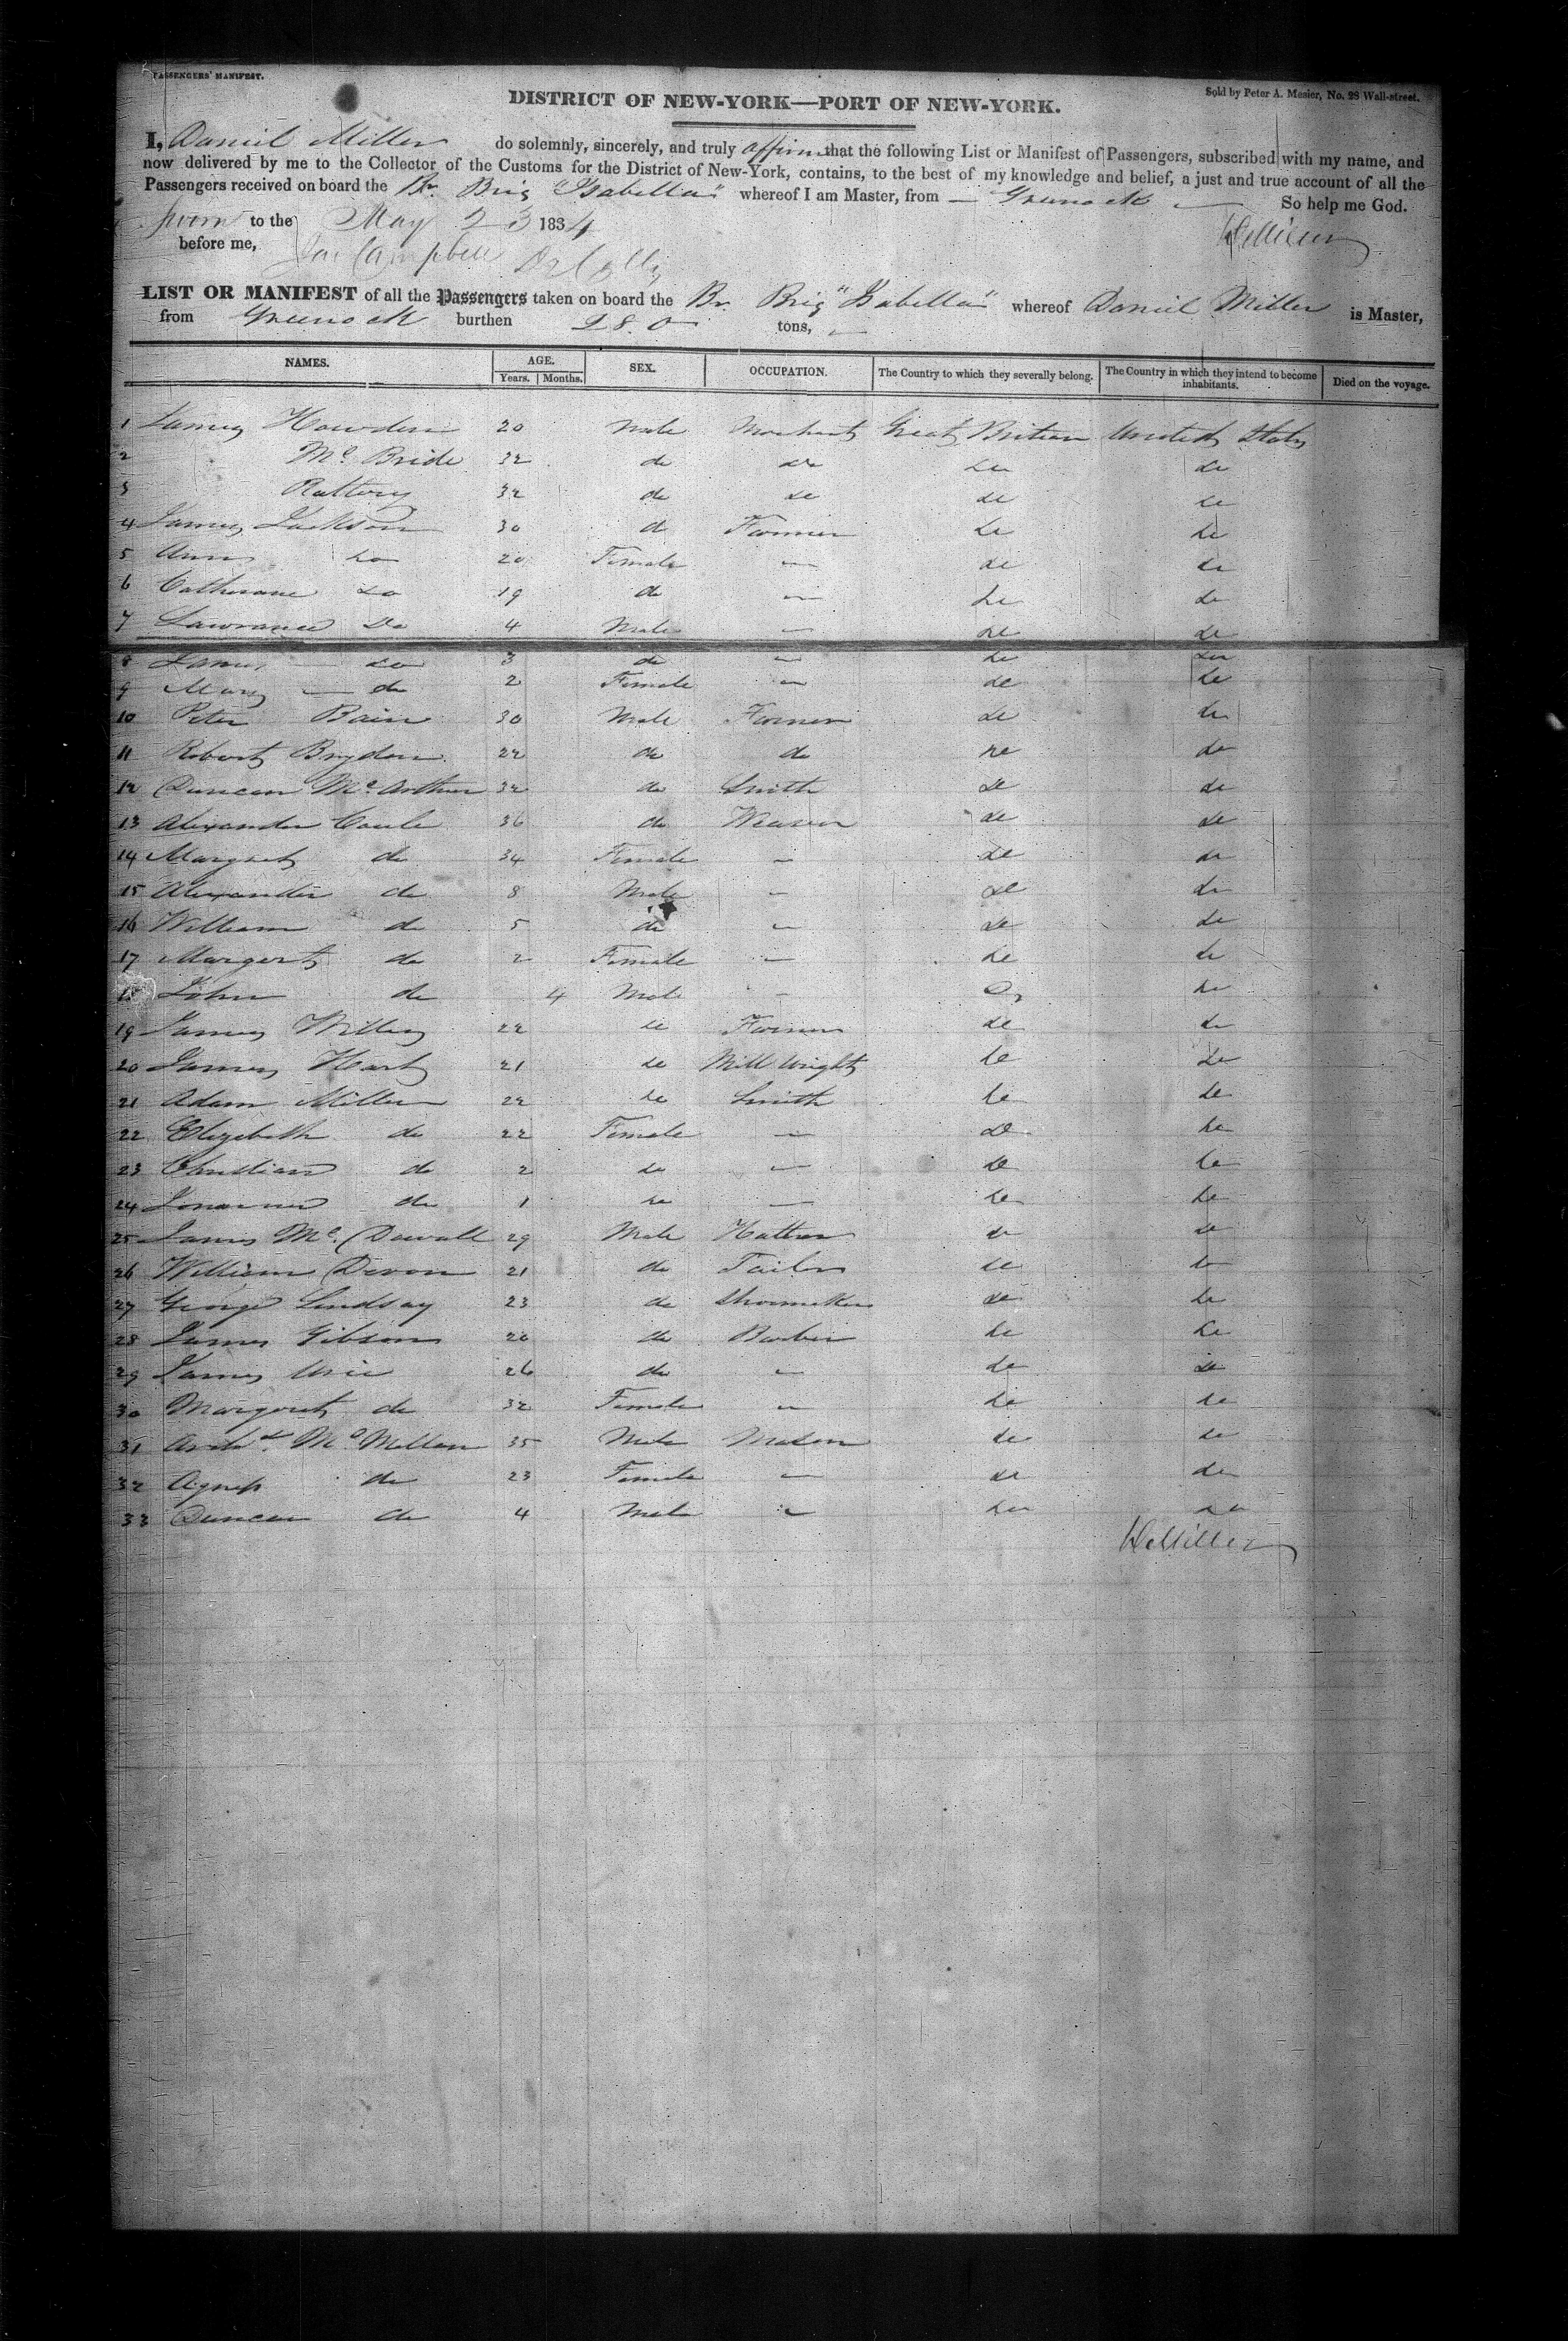 PASSENGERS' MANIFEST.
Sold by Peter A. Mesier, No. 28 Wall-street.
DISTRICT OF NEW-YORK—PORT OF NEW-YORK.
I, Daniel Miller do solemnly, sincerely, and truly affirm that the following List or Manifest of Passengers, subscribed with my name, and
now delivered by me to the Collector of the Customs for the District of New-York, contains, to the best of my knowledge and belief, a just and true account of all the
Passengers received on board the Br. Brig "Isabella" whereof I am Master, from — Greenock — So help me God.
Sworn to the May 23 1834 DMiller
before me, Campbell
LIST OR MANIFEST of all the Passengers taken on board the Br. Brig "Isabella" whereof Daniel Miller is Master,
from Greenock burthen 280 tons,
NAMES. AGE. SEX. OCCUPATION. The Country to which they severally belong. The Country in which they intend to become inhabitants. Died on the voyage.
Years. Months.
1 James Howden 20 Male Merchant Great Britian United States
2 Mc Bride 32 do do do do
3 Rattery 32 do do do do
4 James Jackson 30 do Farmer do do
5 Ann do 20 Female — do do
6 Catherane do 19 do — do do
7 Lawrance Do 4 Male — do do
8 James — do 3 do — do do
9 Mary — do 2 Female — do do
10 Peter Bain 30 Male Farmer do do
11 Robert Brydon 22 do do do do
12 Duncan Mc Arthur 32 do Smith do do
13 Alexander Coule 36 do Weaver do do
14 Margret do 34 Female — do do
15 Alexander do 8 Male — do do
16 William do 5 do — do do
17 Margert do 2 Female — do do
18 John do 4 Male — do do
19 James Willey 22 do Farmer do do
20 James Hart 21 do Mill Wright do do
21 Adam Miller 22 do Smith do do
22 Elizebeth do 22 Female — do do
23 Christian do 2 do — do do
24 do 1 do — do do
25 James Mc Dowall 29 Male Hatter do do
26 William Devon 21 do Tailor do do
27 George Lindsay 23 do Shoemaker do do
28 James Gibson 20 do Barber do do
29 James Urie 26 do — do do
30 Margeret do 32 Female — do do
31 Archd. Mc Millan 35 Male Mason do do
32 Agness do 23 Female — do do
33 Duncan do 4 Male — do do
DMiller